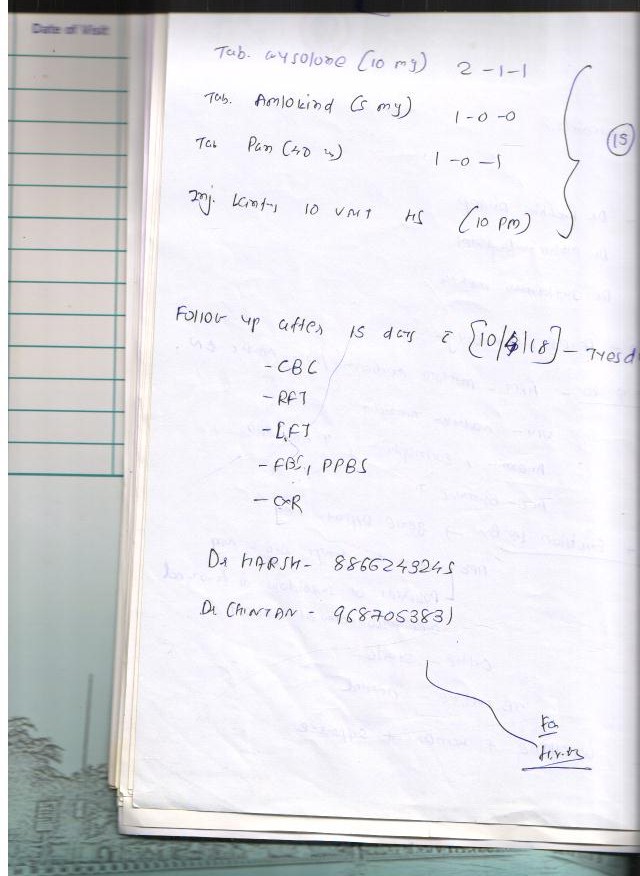 Date of Visit
Tab. Wysolone (10 mg) 2-1-1
Tab. Amlokind (5 mg) 1-0-0
Tab Pan (40 ) 1-0-1
15
Inj. 10 unit HS (10 PM)
Follow up after 15 days c [10/4/18] - Tuesd
- CBC
- RFT
- LFT
- FBS, PPBS
- CXR
Dr HARSH - 8866243245
Dr CHINTAN - 9687053831